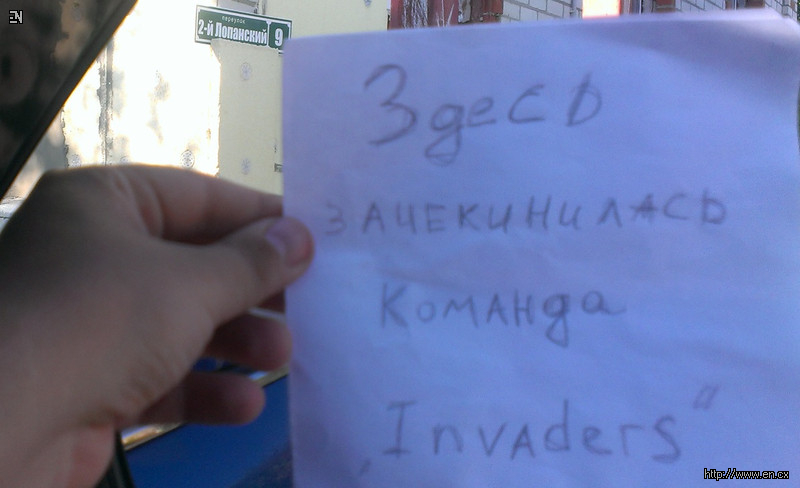 EN
переулок
2-й Лопанский 9
Здесь
ЗАЧЕКИНИЛАСЬ
Команда
„Invaders“
http://www.en.cx